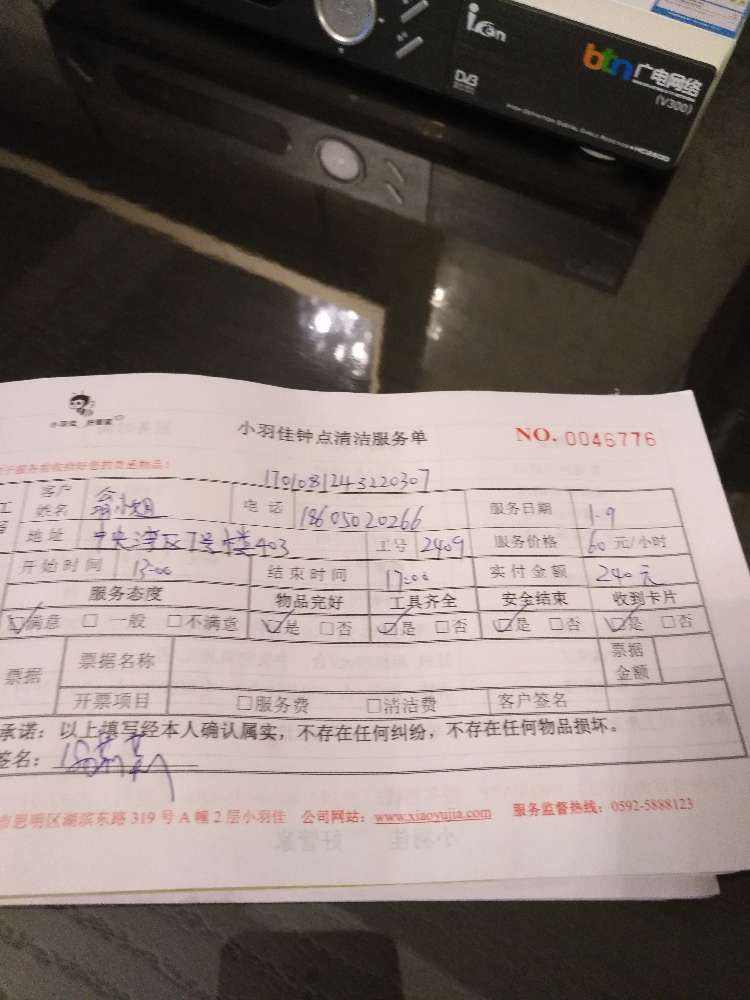 iCan
btn 广电网络
(V300)
DVB
小羽佳 好管家
小羽佳钟点清洁服务单
NO. 0046776
1701081243220307
客户姓名 翁小姐 电话 18605020266 服务日期 1.9
地址 中央湾区1号楼403 工号 2409 服务价格 60元/小时
开始时间 13:00 结束时间 17:00 实付金额 240元
服务态度 物品完好 工具齐全 安全结束 收到卡片
☑满意 □一般 □不满意 ☑是 □否 ☑是 □否 ☑是 □否 ☑是 □否
票据 票据名称 票据金额
开票项目 □服务费 □清洁费 客户签名
承诺：以上填写经本人确认属实，不存在任何纠纷，不存在任何物品损坏。
签名：
市思明区湖滨东路 319 号 A 幢 2 层小羽佳 公司网站：www.xiaoyujia.com 服务监督热线：0592-5888123